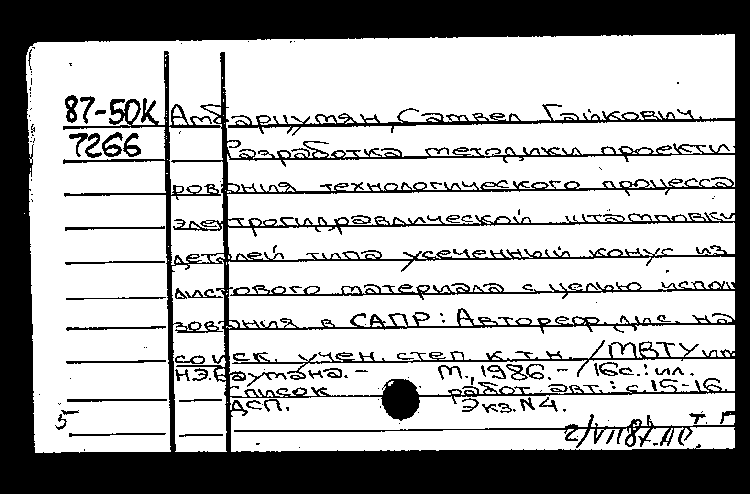 87-50К Амбарцумян, Сатвел Гайкович.
7266 Разработка методики проекти-
рования технологического процесса
электрогидравлической штамповки
деталей типа усеченный конус из
листового материала с целью исполь
зования в САПР: Автореф. дис. на
соиск. учен. степ. к.т.н. /МВТУ им
Н.Э.Баумана. - М., 1986. - 16с.: ил.
Список работ авт.: с.15-16.
ДСП. Экз.N4.
5